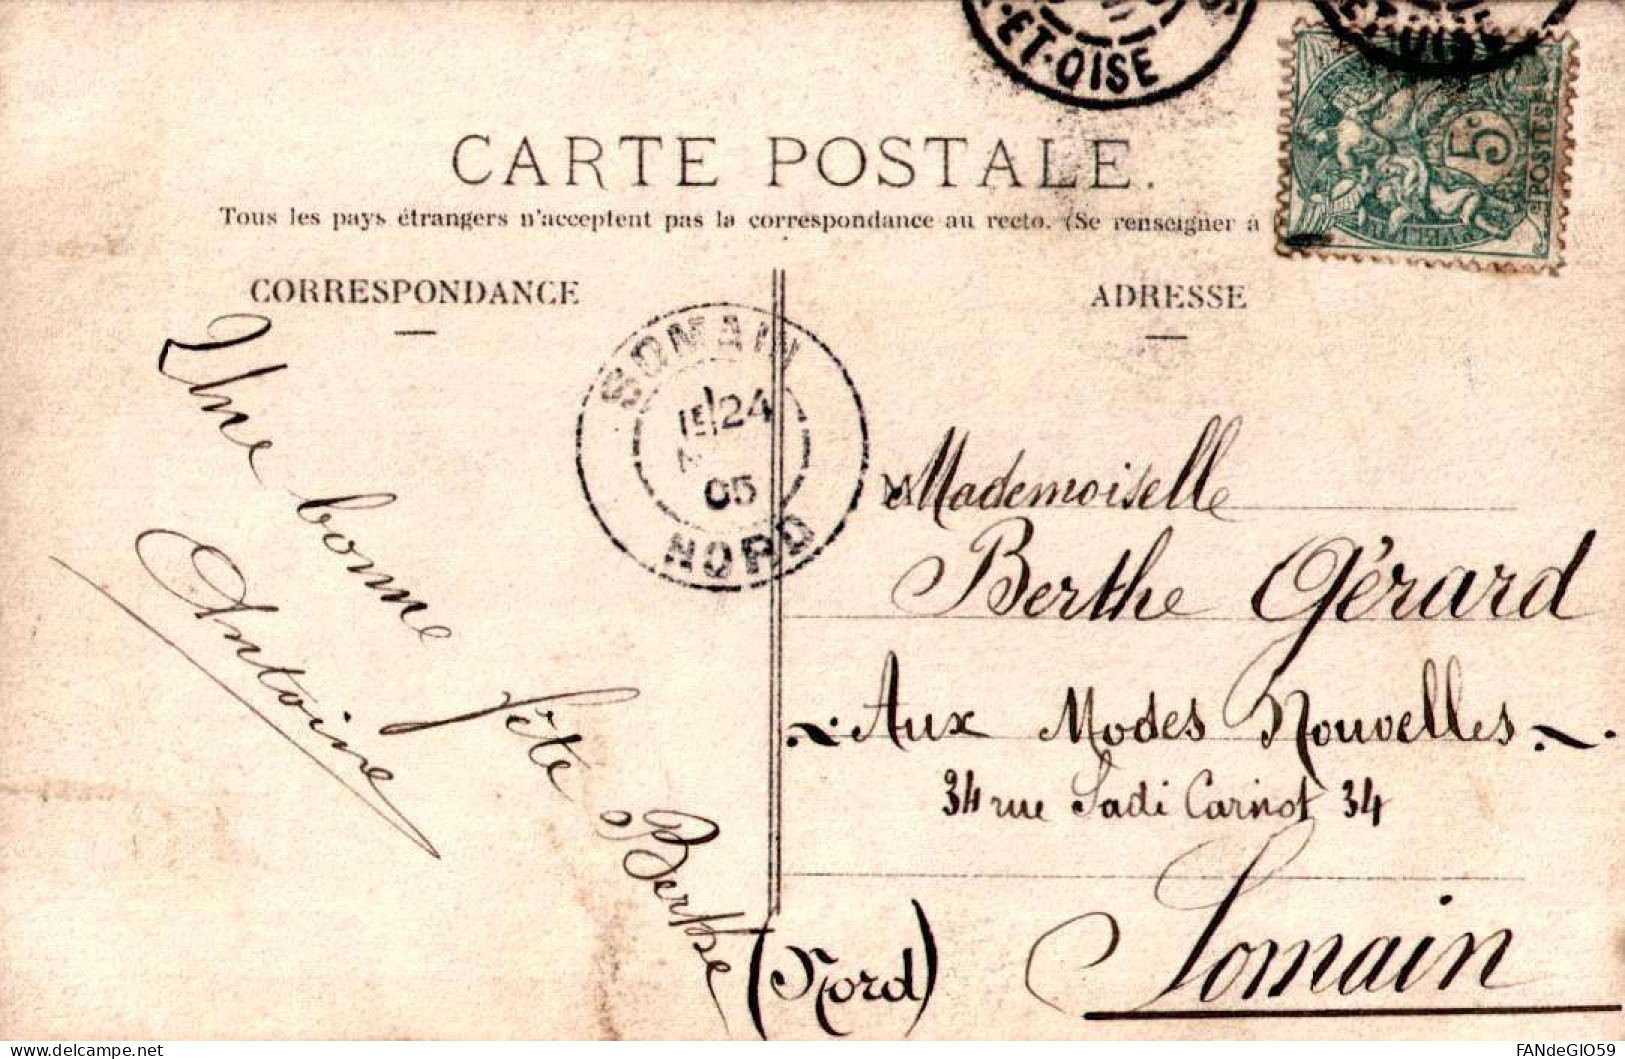 -ET-OISE
5c
POSTES
CARTE POSTALE.
Tous les pays étrangers n'acceptent pas la correspondance au recto. (Se renseigner à
CORRESPONDANCE
ADRESSE
SOMAIN
24
05
NORD
Une bonne fête Berthe
Antoine
Mademoiselle
Berthe Gérard
Aux Modes Nouvelles
34 rue Sadi Carnot 34
Somain
(Nord)
FANdeGIO59